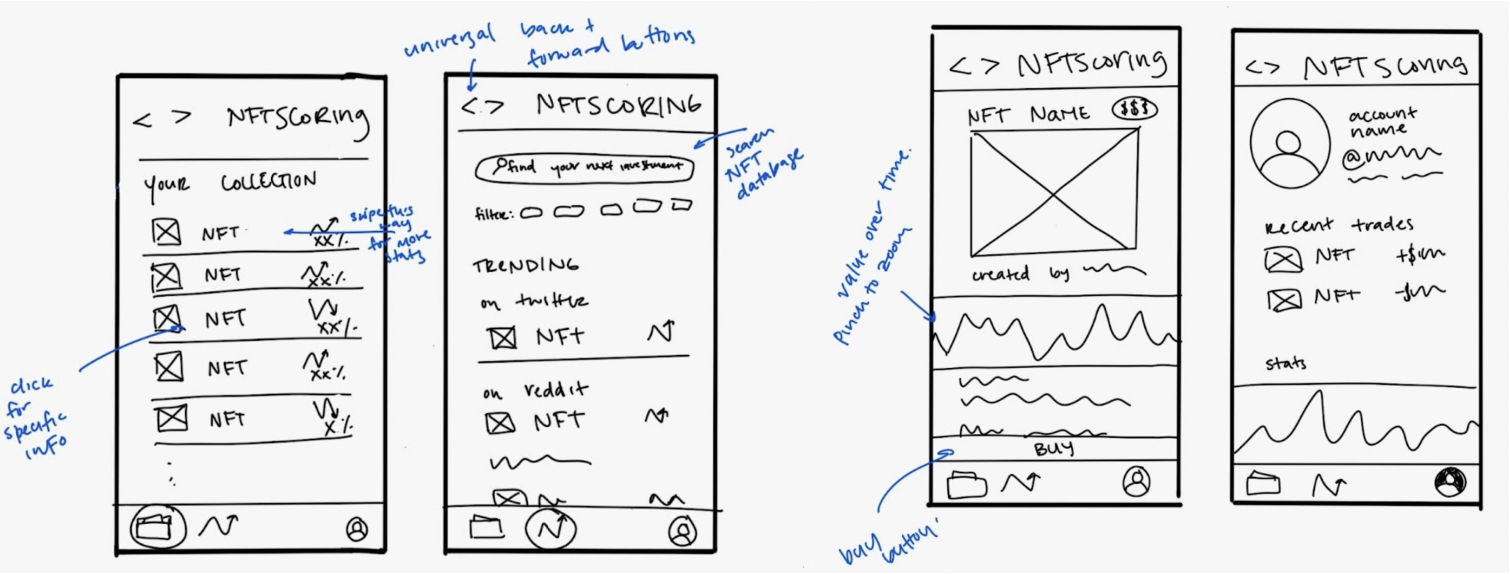 < > NFTSCORING
YOUR COLLECTION
NFT
XX%
NFT
XX%
NFT
XX%
NFT
XX%
NFT
X%
swipe this
way
for more
stats
click
for
specific
info
universal back +
forward buttons
< > NFTSCORING
find your next investment
search
NFT
database
filter:
TRENDING
on twitter
NFT
on reddit
NFT
< > NFTScoring
NFT NAME $$$
created by
value over time.
Pinch to zoom
BUY
buy
button
< > NFTSconng
account
name
@
Recent trades
NFT +$
NFT -$
stats